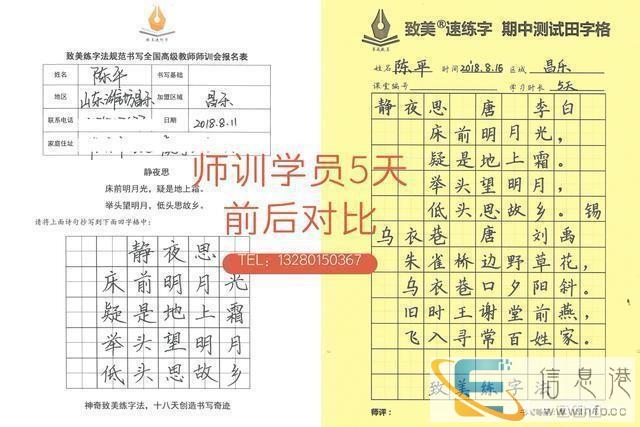 致美练字法规范书写全国高级教师师训会报名表
姓名 陈平 书写基础
地区 山东潍坊昌乐 加盟区域 昌乐
联系电话 日期 2018.8.11
家庭住址
静夜思
床前明月光，疑是地上霜。
举头望明月，低头思故乡。
请将上面诗句抄写到下面田字格中：
静夜思
床前明月光
疑是地上霜
举头望明月
低头思故乡
神奇致美练字法，十八天创造书写奇迹
师训学员5天
前后对比
TEL：13280150367
致美®速练字 期中测试田字格
姓名 陈平 时间 2018.8.16 区域 昌乐
课堂编号 学习时长 5天
静夜思 唐 李白
床前明月光，
疑是地上霜。
举头望明月，
低头思故乡。锡
乌衣巷 唐 刘禹
朱雀桥边野草花，
乌衣巷口夕阳斜。
旧时王谢堂前燕，
飞入寻常百姓家。
致美练字法
师评：
信息港